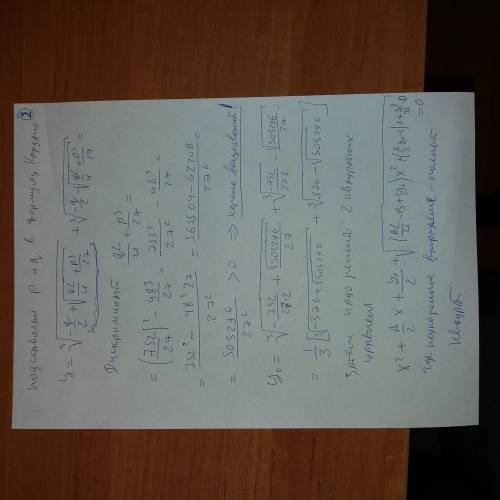 Подставляем p и q в формулу Кардано ②
y = ∛(-q/2 + √(q²/4 + p³/27)) + ∛(-q/2 - √(q²/4 + p³/27)) =
Дискриминант q²/4 + p³/27 =
= (752/27)² - 48³/27 = 752²/27² - 48³/27 =
= (752² - 48³·27)/27² = (565504 - 62208)/27² =
= 503296/27² > 0 ⇒ корни вещественный!
y₀ = ∛(-752/27·2 + √503296/27) + ∛(-752/27·2 - √503296/27) =
= 1/3 [∛(-376 + √503296) + ∛(-376 - √503296)]
Затем надо решить 2 квадратных
уравнения
x² + A/2 x + y₀/2 = ±√((A²/4 - B + y₀)x² + (A/2 y₀ - C)x + y₀²/4 - D)
где подкоренные выражение - полный = 0
квадрат